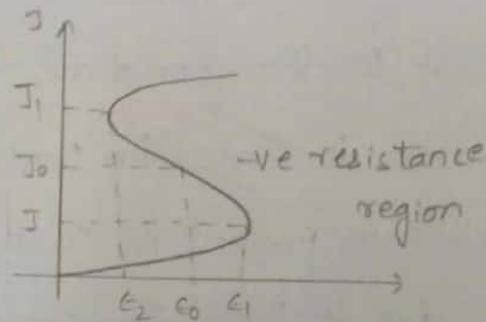 J
J1
J0
J
-ve resistance
region
E2 E0 E1